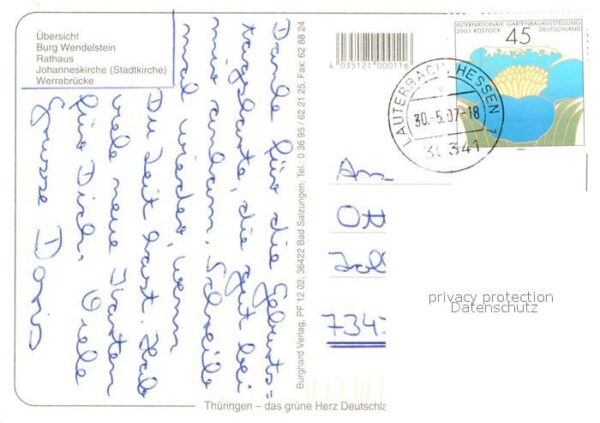 Übersicht
Burg Wendelstein
Rathaus
Johanneskirche (Stadtkirche)
Werrabrücke
Danke für die Geburts=
tagskarte, die gut bei
mir ankam. Schreibe
mal wieder, wenn
Du Zeit hast. Hab
viele neue Karten
für Dich. Viele
Grüsse Doris
Burghard Verlag, PF 12 02, 36422 Bad Salzungen, Tel.: 0 36 95 / 62 21 25, Fax: 62 88 24
4 035121 000116
INTERNATIONALE GARTENBAUAUSSTELLUNG
2003 ROSTOCK DEUTSCHLAND
45
LAUTERBACH, HESSEN 1
30.-5.07-18
36 341
An
Ott
734
privacy protection
Datenschutz
Thüringen – das grüne Herz Deutschla